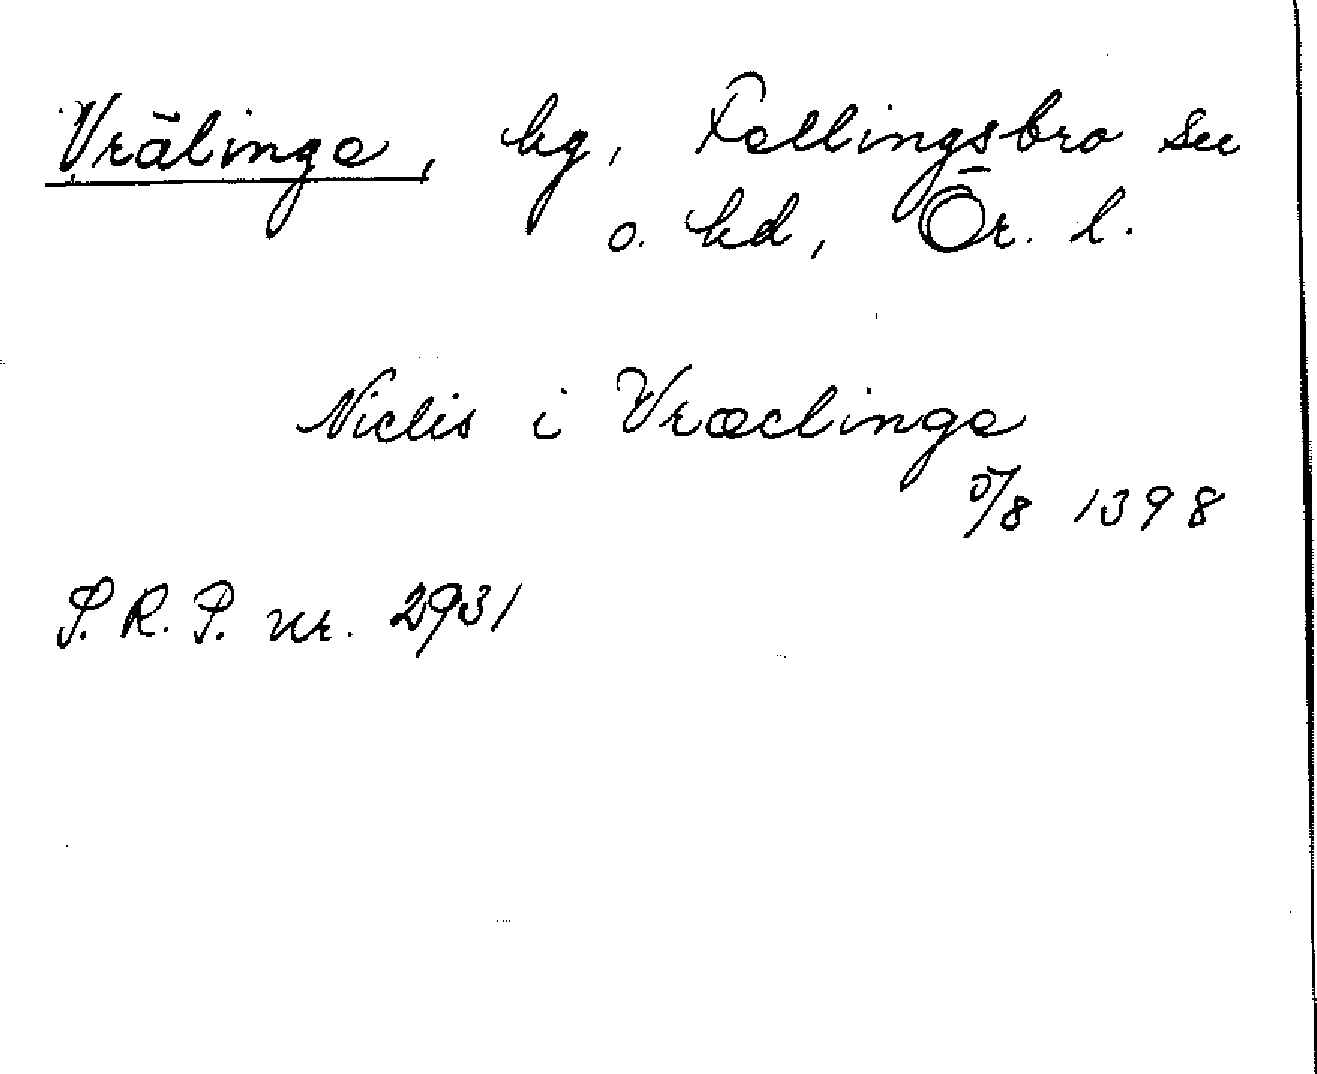 Vrälinge, hg, Fellingsbro sn
o. hd, Ör. l.
Niclis i Vræclinge
5/8 1398
S.R.P. nr. 2931